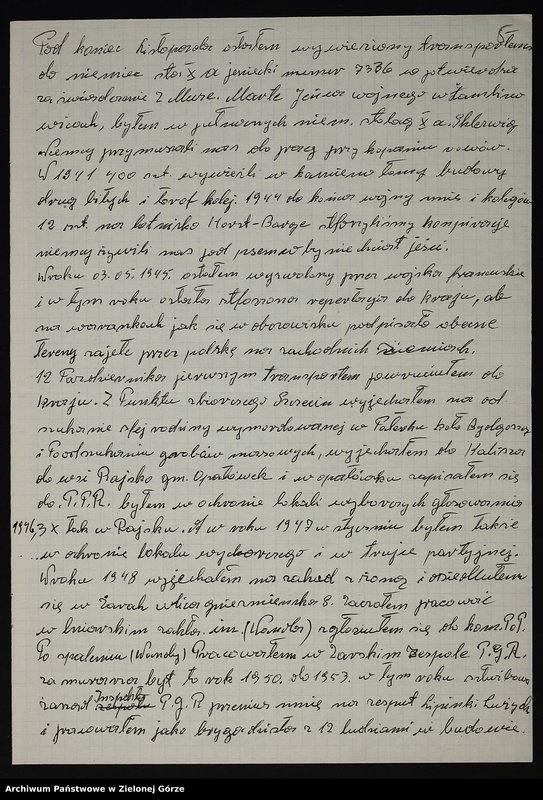 5
Pod koniec Listopada ostałem wywieziony transportem
do niemiec sta X a jeniecki numer 7386 co potwierdza
zaświadczenie z Muze. Martr. Jeńców wojennego w Łambino
wicach, byłem w północnych niem. stalag X a. Shlezwig
Niemcy przymusali nas do pracy przy kopaniu rowów.
W 1941 400 szt. wywieźli w kamieno łomy budowy
dróg bitych i torof kolej. 1944 do końca wojny mnie i kolegów
12 szt. na lotnisko Horst-Barge stforzyliśmy konspiracje
niemcy żywili nas pod psem w by nie chciał jeści.
W roku 03.05.1945. ostałem wyzwolony przez wojska francuskie
i w tym roku ostała stforzona repertlacja do kraju, ale
na warunkach jak się w obozowisku podpisało obecne
tereny zajęte przez polskę na zachodnich ziemiach.
12 Pazdziernika pierwszym transportem powruciłem do
kraju. Z Punktu zbiorczego Szczecin wyjechałem na od
szukanie sfej rodziny wymordowanej w Paterku koło Bydgoszczy
i Poodszukaniu grobów masowych, wyjechałem do Kalisza
do wsi Rajsko gm. Opatówek i w opatówku zapisałem się
do P.P.R. byłem w ochronie lokali wyborczych głosowania
1946, 3 X Tak w Rajsku. A w roku 1947 w styczniu byłem także
w ochronie lokalu wyborczego i w trujce partyjnej.
W roku 1948 wyjechałem na zachod z żoną i osiedliłem
się w Żarach ulica gnieźnienska 8. zaczołem pracować
w lniarskim zakła. im. (Wanda) zgłosiłem się do kom. P.P.
Po spaleniu (Wandy) Pracowałem w Żarskim Zespole P.G.R.
za murarza był to rok 1950. do 1953. w tym roku
zarząd Inspekto P.G.R przeniós mnie na zespuł Lipinki Łużyck
i pracowałem jako brygadzista z 12 ludziami w budowie.
Archiwum Państwowe w Zielonej Górze